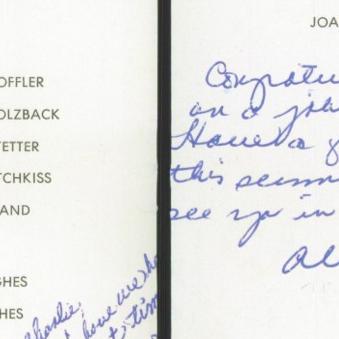 OFFLER
OLZBACK
ETTER
TCHKISS
AND
GHES
HES
Charlie,
have we sh
tim
JOA
Congratu
on a job
Have a g
this summ
see ya in
Al